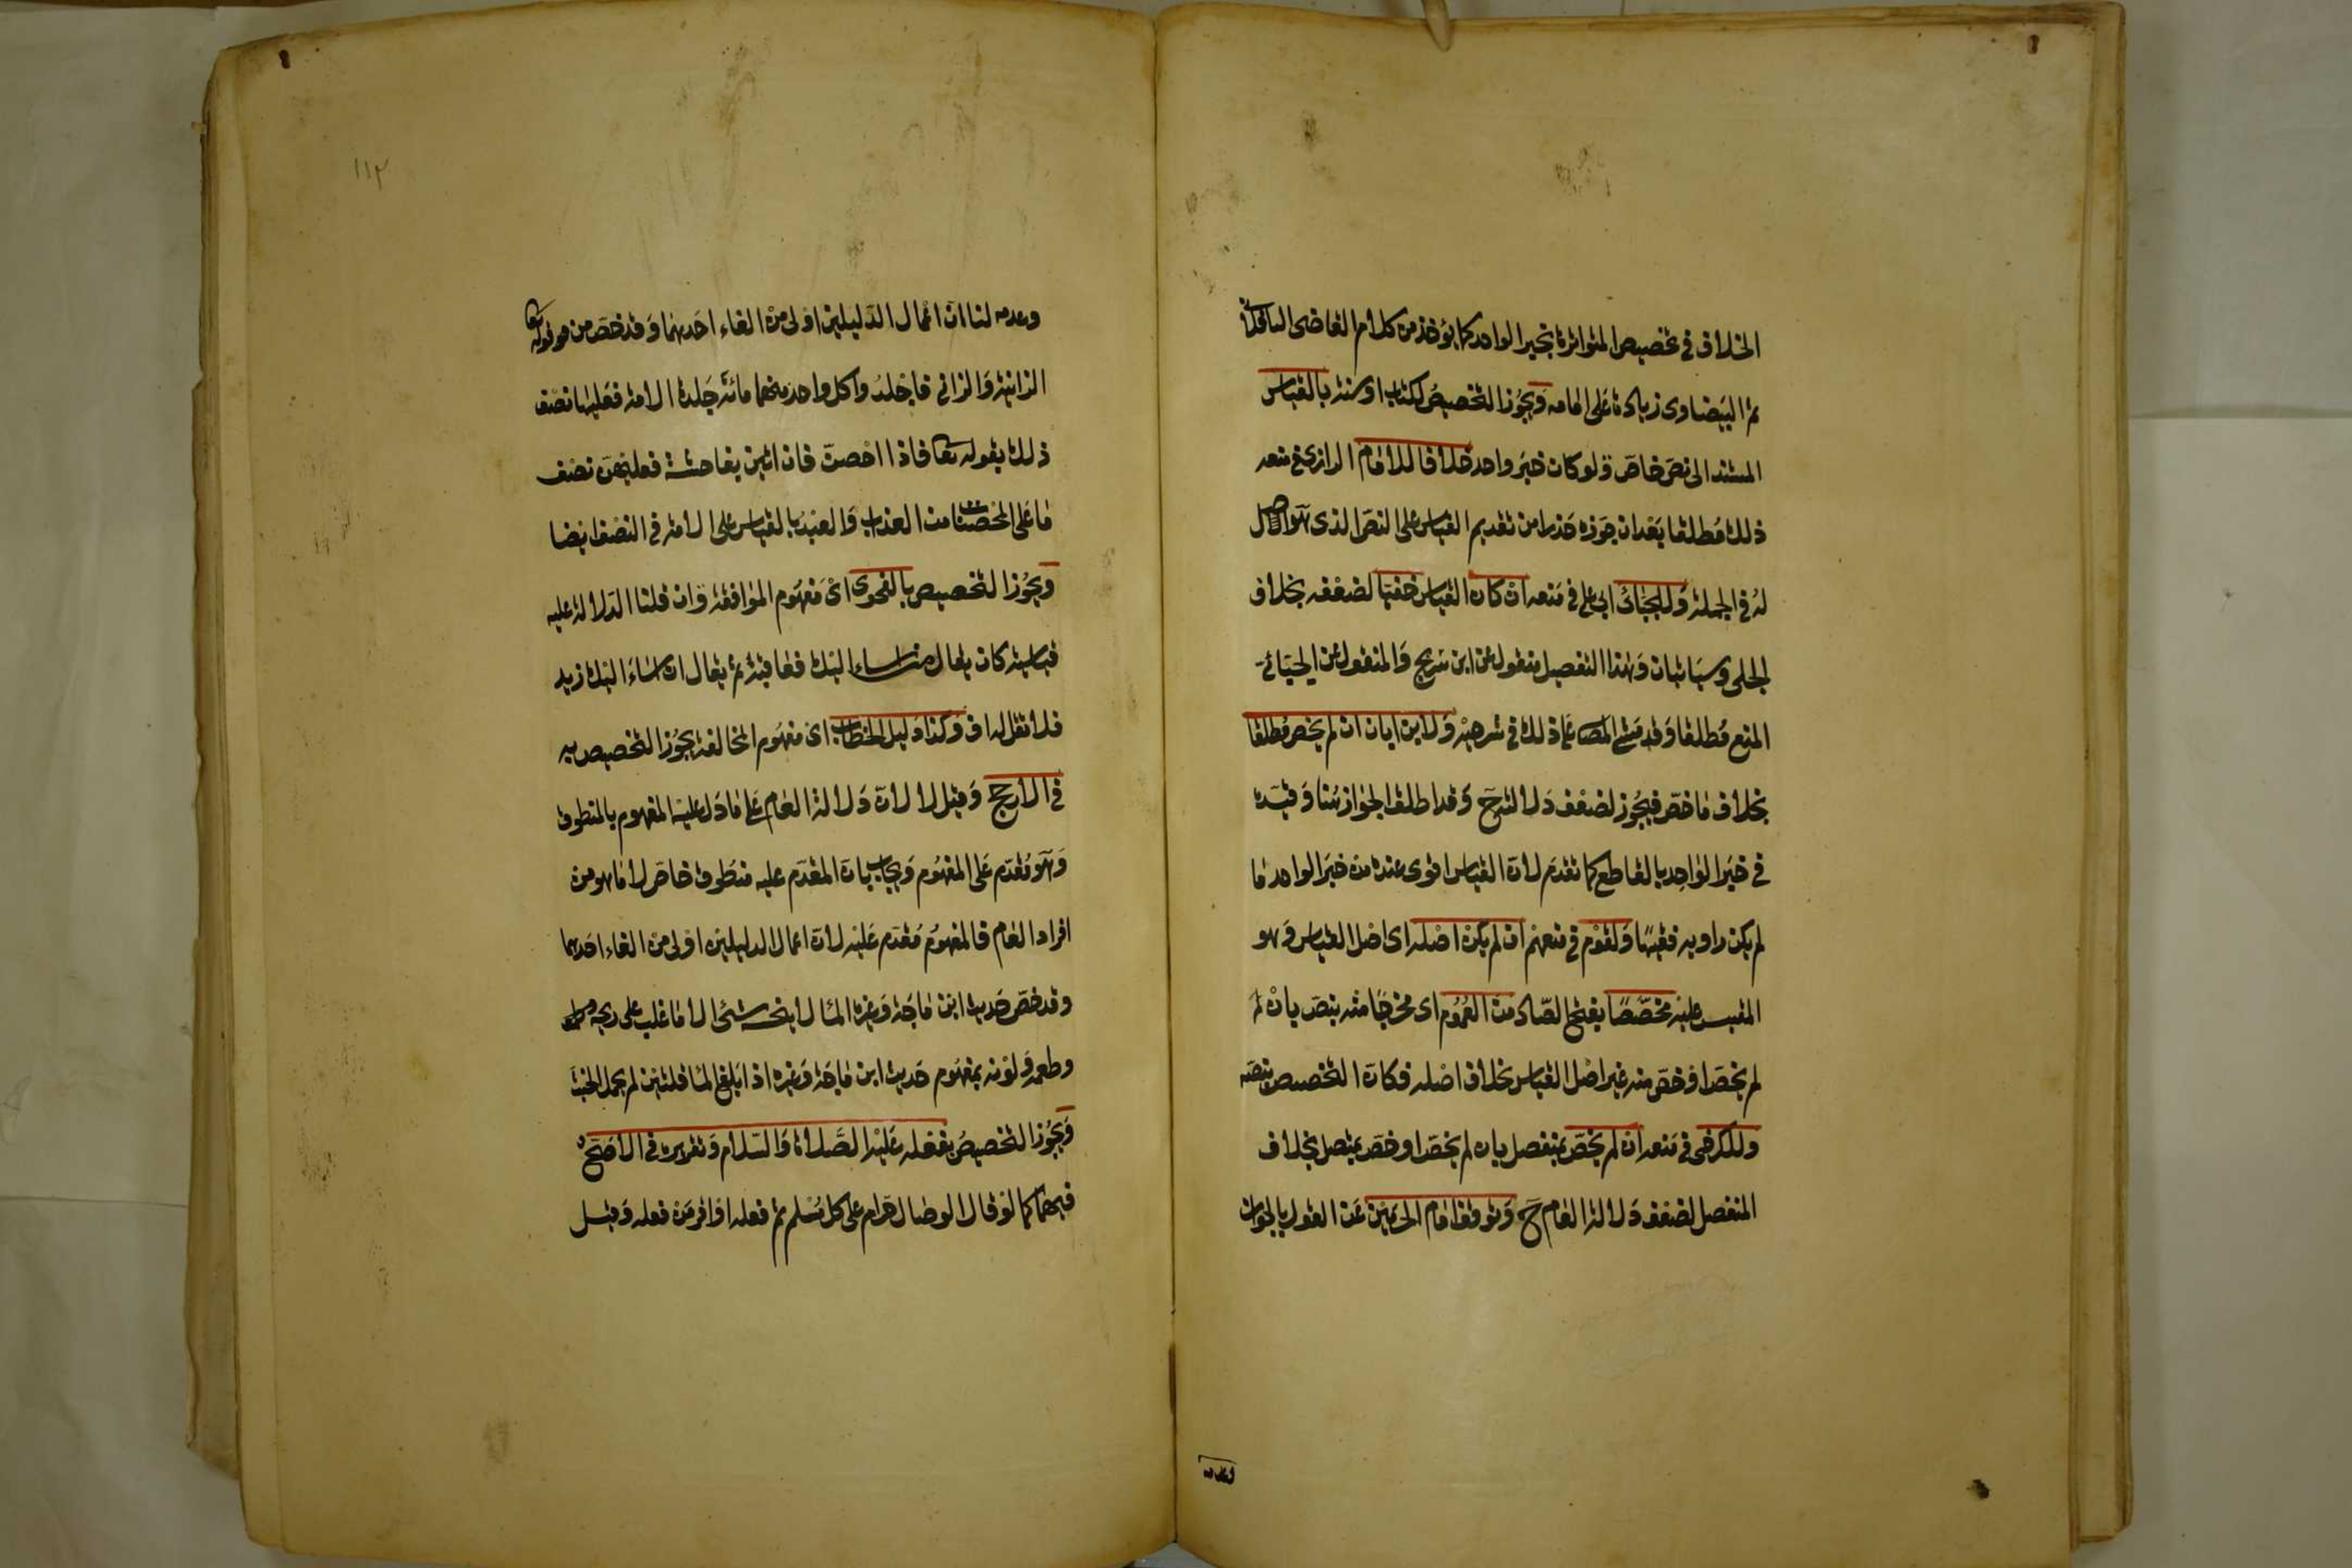 الخلاف في تخصيص المتواترة بخبر الواحد كما يؤخذ من كلام القاضى الباقلانى
ثم البيضاوى زيادة على العامه ويجوز التخصيص لكتاب او سنة بالقياس
المستند الى نص خاص ولو كان خبر واحد خلافا للامام الرازى في منعه
ذلك مطلقا بعد ان جوزه حذرا من تقديم القياس على النص الذى هو اصل
له في الجملة وللجبائى ابي على في منعه ان كان القياس خفيا لضعفه بخلاف
الجلى وسياتيان وهذا التفصيل منقول عن ابن سريج والمنقول عن الجبائي
المنع مطلقا وقد مشى المص على ذلك في شرحيه ولابن ابان ان لم يخص مطلقا
بخلاف ما خص فيجوز لضعف دلالته ح وقد اطلق الجواز هنا وقيده
في خبر الواحد بالقاطع كما تقدم لان القياس اقوى عنده من خبر الواحد ما
لم يكن راويه فقيها ولقوم في منعهم ان لم يكن اصله اى اصل القياس وهو
المقيس عليه مخصصا بفتح الصاد من العموم اى مخرجا منه بنص بان لم
لم يخص او خص منه غير اصل القياس بخلاف اصله فكان التخصيص بنصه
وللكرخى في منعه ان لم يخص بمنفصل بان لم يخص او خص بمتصل بخلاف
المنفصل لضعف دلالة العام ح وتوقف امام الحرمين عن القول بالجواز
وعدمه
١١٢
وعدمه لنا ان اعمال الدليلين اولى من الغاء احدهما وقد خص من قوله تعا
الزانية والزاني فاجلدوا كل واحد منهما مائة جلدة الامة فعليها نصف
ذلك بقوله تعا فاذا احصن فان اتين بفاحشة فعليهن نصف
ما على المحصنات من العذاب والعبد بالقياس على الامة في النصف ايضا
ويجوز التخصيص بالفحوى اى مفهوم الموافقة وان قلنا الدلالة عليه
قياسية كان يقال من اساء اليك فعاقبه ثم يقال ان اساء اليك زيد
فلا تقل له اف وكذا دليل الخطاب اى مفهوم المخالفة يجوز التخصيص به
في الارجح وقيل لا لان دلالة العام على ما دل عليه المفهوم بالمنطوق
وهو مقدم على المفهوم ويجاب بان المقدم عليه منطوق خاص لا ما هو من
افراد العام فالمفهوم مقدم عليه لان اعمال الدليلين اولى من الغاء احدهما
وقد خص حديث ابن ماجة وغيره الماء لا ينجسه شئ الا ما غلب على ريحه
وطعمه ولونه بمفهوم حديث ابن ماجة وغيره اذا بلغ الماء قلتين لم يحمل الخبث
ويجوز التخصيص بفعله عليه الصلاة والسلام وتقريره في الاصح
فيهما كما لو قال الوصال حرام على كل مسلم ثم فعله او اقر من فعله وقيل